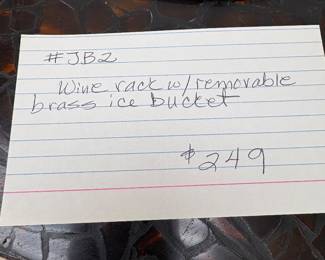 #JB2
Wine rack w/removable
brass ice bucket
$249